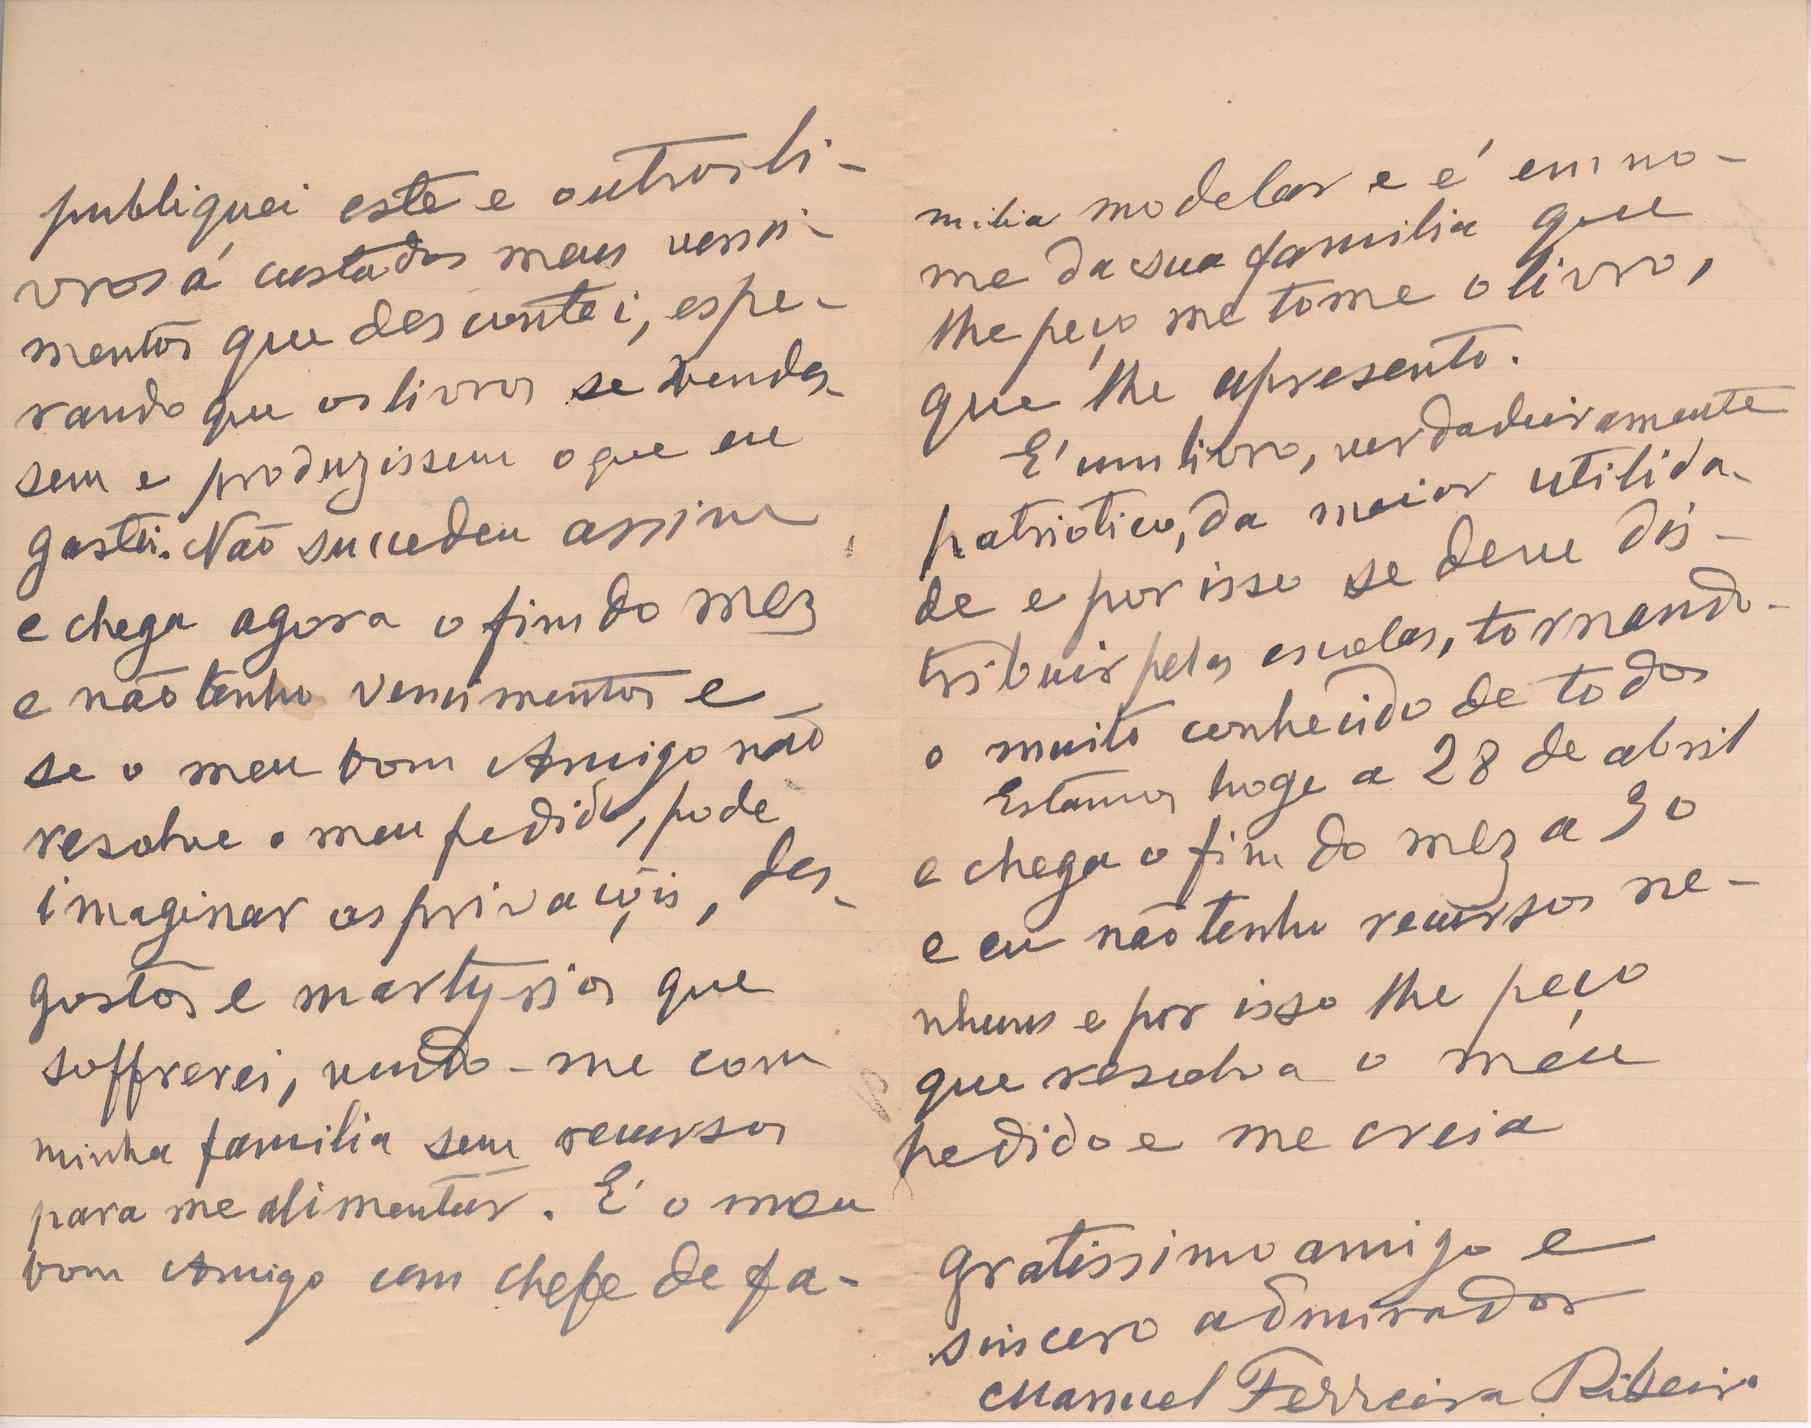 publiquei este e outros li-
vros á custa dos meus venci-
mentos que descontei, espe-
rando que os livros se vendes-
sem e produzissem o que eu
gastei. Não succedeu assim
e chega agora o fim do mez
e não tenho vencimentos e
se o meu bom Amigo não
resolve o meu pedido, pode
imaginar as privações, des-
gostos e martyrios que
soffrerei, vendo-me com
minha familia sem recursos
para me alimentar. E' o meu
bom Amigo um chefe de fa-
milia modelar e é em no-
me da sua familia que
lhe peço me tome o livro,
que lhe apresento.
E' um livro, verdadeiramente
patriotico, da maior utilida-
de e por isso se deve dis-
tribuir pelas escolas, tornando-
o muito conhecido de todos
Estamos hoge a 28 de abril
e chega o fim do mez a 30
e eu não tenho recursos ne-
nhuns e por isso lhe peço
que resolva o meu
pedido e me creia
gratissimo amigo e
sincero admirador
Manuel Ferreira Ribeiro